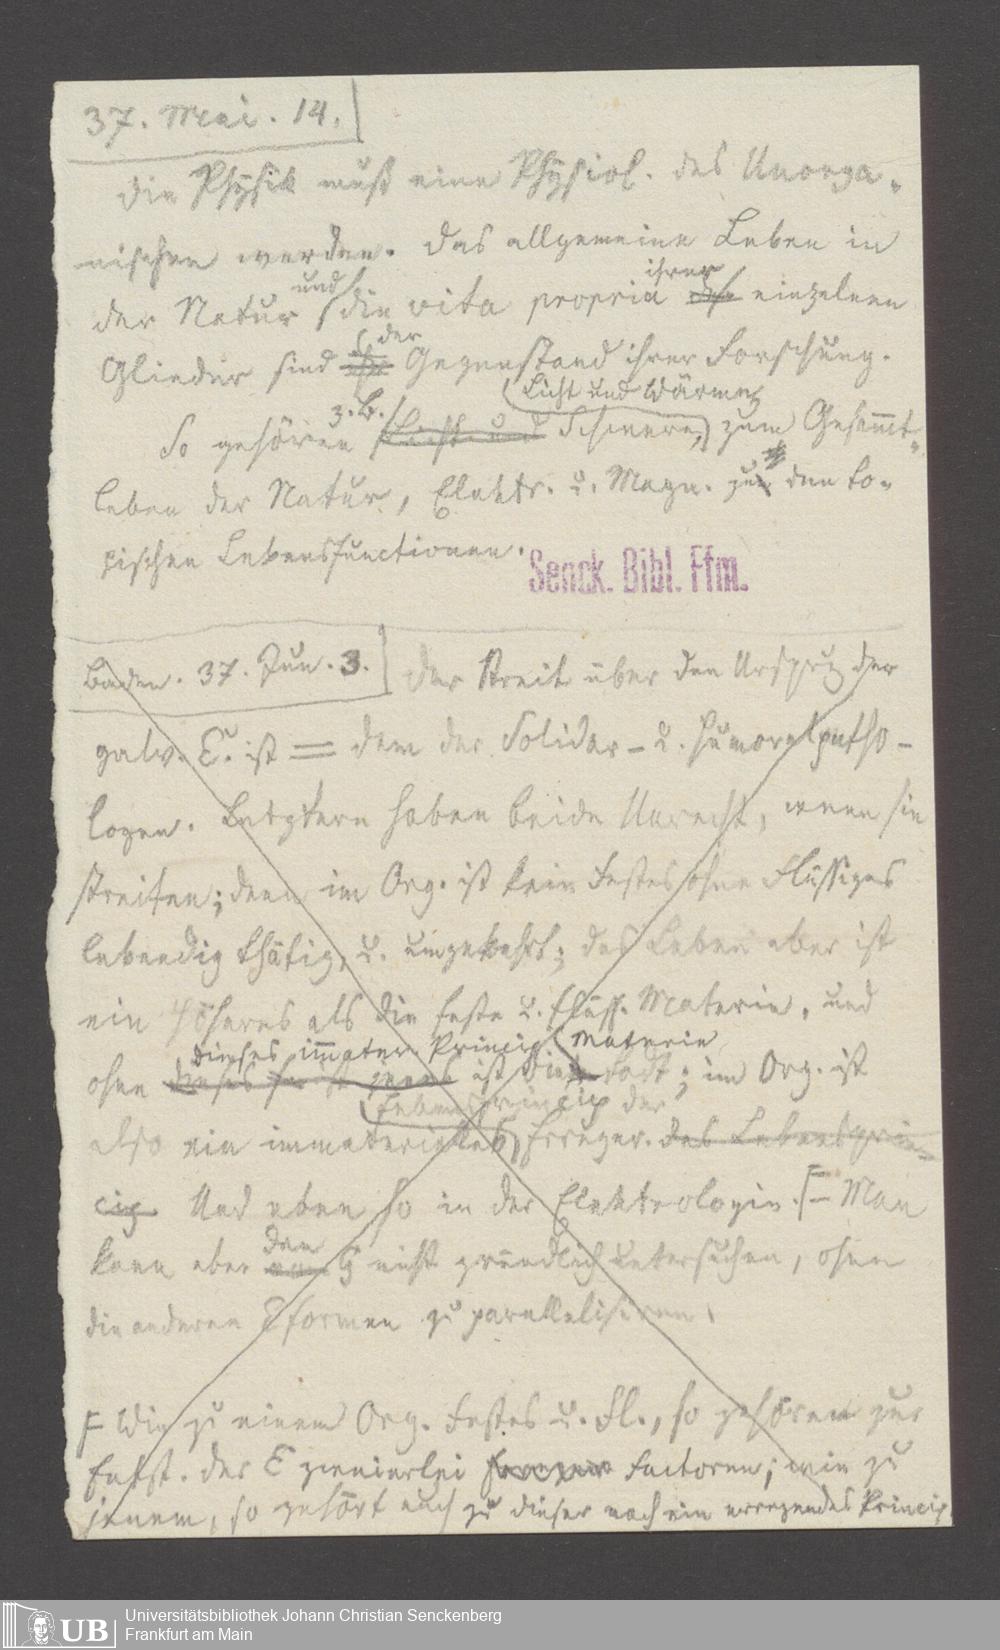 37. Mai. 14.
Die Physik muß eine Physiol. des Unorga-
nischen werden. Das allgemeine Leben in
der Natur und die vita propria ihrer einzelnen
Glieder sind der Gegenstand ihrer Forschung.
Licht und Wärme
So gehören z. B. Licht und Schwere, zum Gesammt-
leben der Natur, Elektr. u. Magn. zu den to-
pischen Lebensfunctionen.
Senck. Bibl. Ffm.
Baden. 37. Jun. 3. Der Streit über den Ursprg der
galv. E. ist = dem der Solidar- u. Humoralpatho-
logen. Letztere haben beide Unrecht, wenn sie
streiten; denn im Org. ist kein Festes ohne Flüssiges
lebendig thätig, u. umgekehrt; das Leben aber ist
ein Höheres als die feste u. flüss. Materie, und
dieses immater. Princip Materie
ohne dieses ist jenes ist die todt; im Org. ist
Lebensprincip der
also ein immaterielles Erreger. das Lebensprin-
cip Und eben so in der Elektrologie. F – Man
kann aber den G nicht gründlich untersuchen, ohne
die anderen Eformen zu parallelisiren.
F Wie zu einem Org. Festes u. Fl., so gehören zur
Entst. der E zweierlei Factoren; wie zu
jenem, so gehört auch zu dieser noch ein erregendes Princip
Universitätsbibliothek Johann Christian Senckenberg
Frankfurt am Main
UB